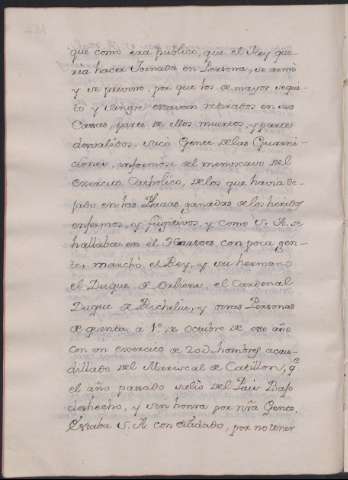 que como era publico, que el Rey que-
ria hacer Jornada en Persona, se armò
y se previno, por que los de mayor sequi-
to y sangre estavan retirados en sus
Casas, parte de ellos muertos, y parte
desvalidos, sacó Gente de las Guarni-
ciones, informose del menoscavo del
exercito Catholico, de los que havia de-
jado en las Plazas ganadas de los heridos
enfermos, y fugitivos, y como S. A. se
hallaba en el con poca gen-
te; marchó el Rey, y su hermano
el Duque de Orliens, el Cardenal
Duque de Richelieu, y otras Personas
de quenta, à 1º de Octubre de ese año
con un exercito de 20D hombres acau-
dillato del Mariscal de Catillon, qe
el año pasado salió del Pais Bajo
deshecho, y sin honra por nra Gente.
Estaba S. A. con cuidado, por no tener